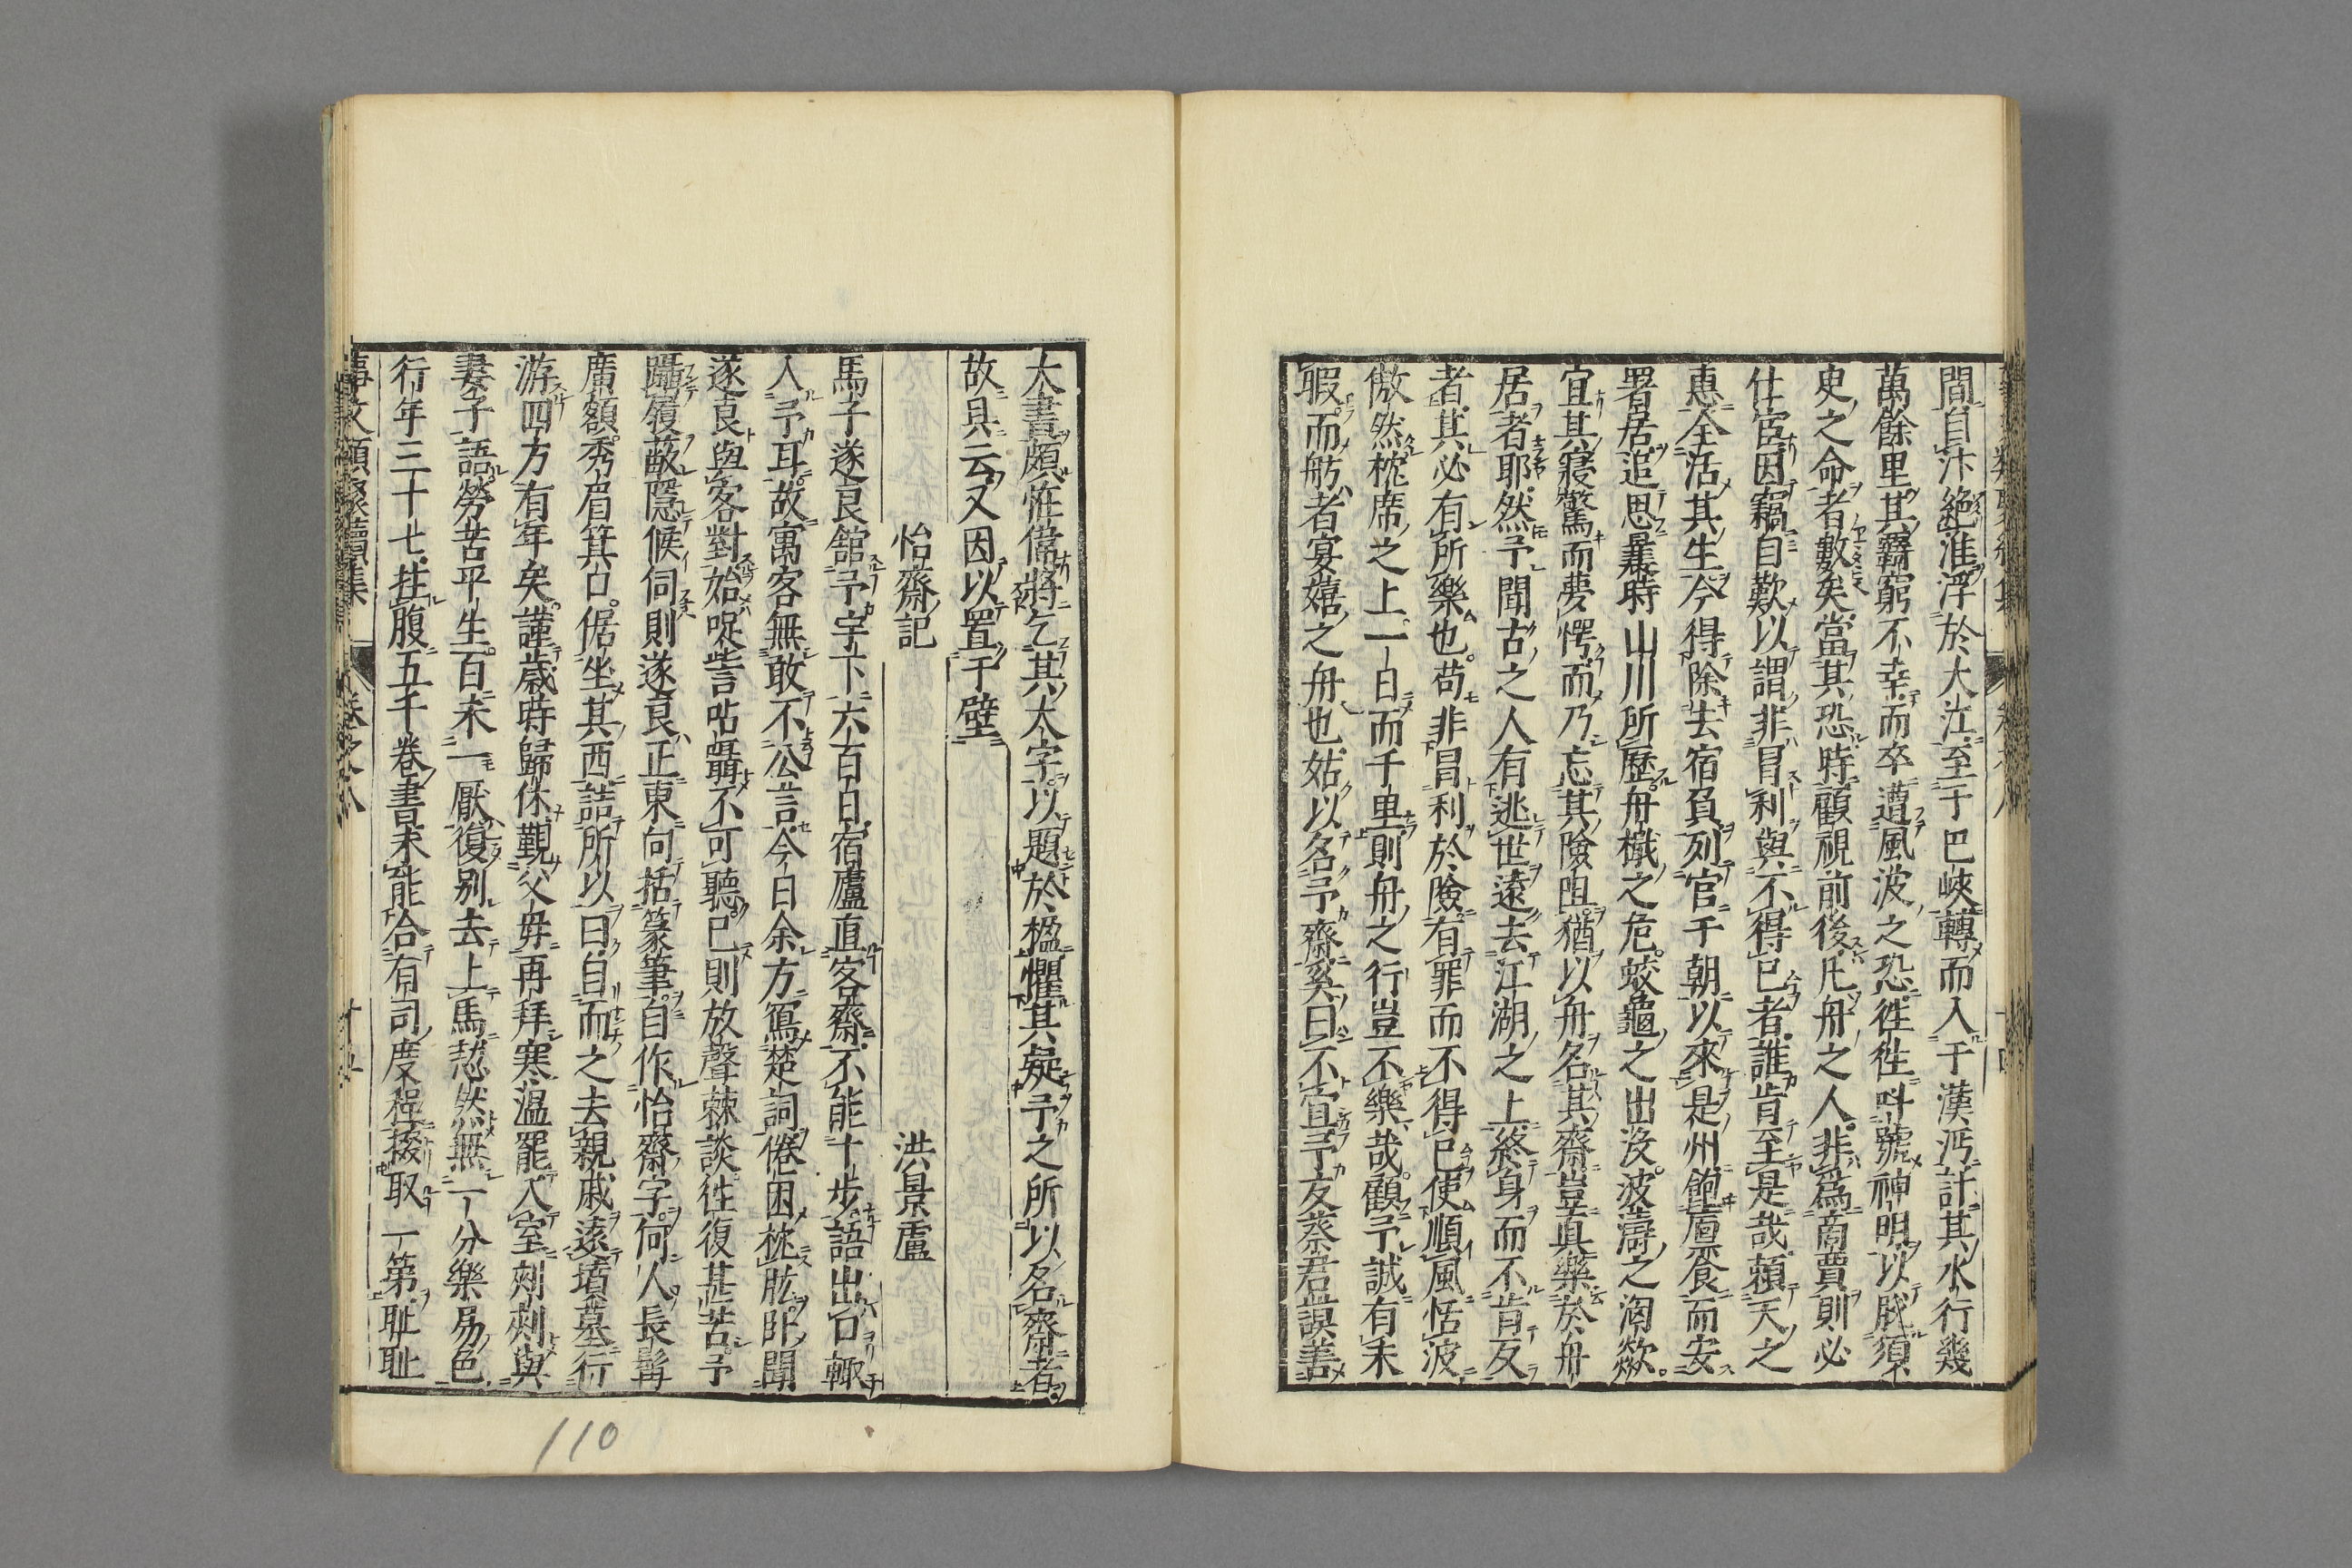 間自汴絶淮浮於大江至于巴峽轉而入于漢沔計其水行幾
萬餘里其覊窮不幸而卒遭風波之恐徃徃呌號神明以脱須
臾之命者數矣當其恐時顧視前後凡舟之人非爲商賈則必
仕宦因竊自歎以謂非冐利與不得已者誰肯至是哉頼天之
惠全活其生今得除去宿負列官于朝以來是州飽廩食而安
署居追思曩時山川所歷舟檝之危蛟龜之出沒波濤之洶歘
宜其寢驚而夢愕而乃忘其險阻猶以舟名其齋豈真樂於舟
居者耶然予聞古之人有逃世遠去江湖之上終身而不肯反
者其必有所樂也苟非冐利於險有罪而不得已使順風恬波
傲然枕席之上一日而千里則舟之行豈不樂哉顧予誠有未
暇而舫者宴嬉之舟也姑以名予齋奚曰不宜予友蔡君謨善
大書頗怪偉將乞其大字以題於楹懼其疑予之所以名齋者
故具云又因以置于壁
怡齋記　洪景盧
馬子遂良舘予宇下六百日宿廬直客齋不能十歩語出口輙
入予耳故寓客無敢不公言今日余方寫楚詞倦困枕肱卧聞
遂良與客對始哫訾呫囁不可聽已則放聲棘談徃復甚苦予
躡履蔽隱候伺則遂良正東向括篆筆自作怡齋字何人長髯
廣額秀眉箕口倨坐其西詰所以曰自而之去親戚遠墳墓行
游四方有年矣謹歳時歸休覲父毋再拜寒温罷入室刺刺與
妻子語勞苦平生百未一厭復别去上馬愁然無一分樂易色
行年三十七拄腹五千卷書未能合有司度程掇取一第耻耻
事文類聚續集　卷之八　十五